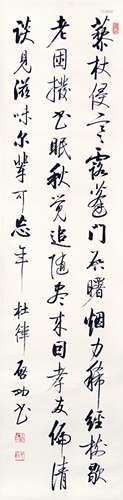 藜杖侵寒露蓬门启曙烟力稀经树歇
老困拨书眠秋觉追随尽来因孝友偏清
谈见滋味尔辈可忘年 杜律 启功书